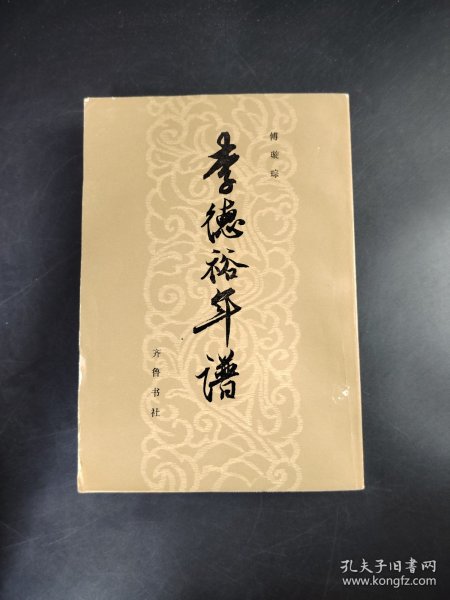 傅璇琮
李德裕年譜
齐鲁书社
孔夫子旧书网
www.kongfz.com